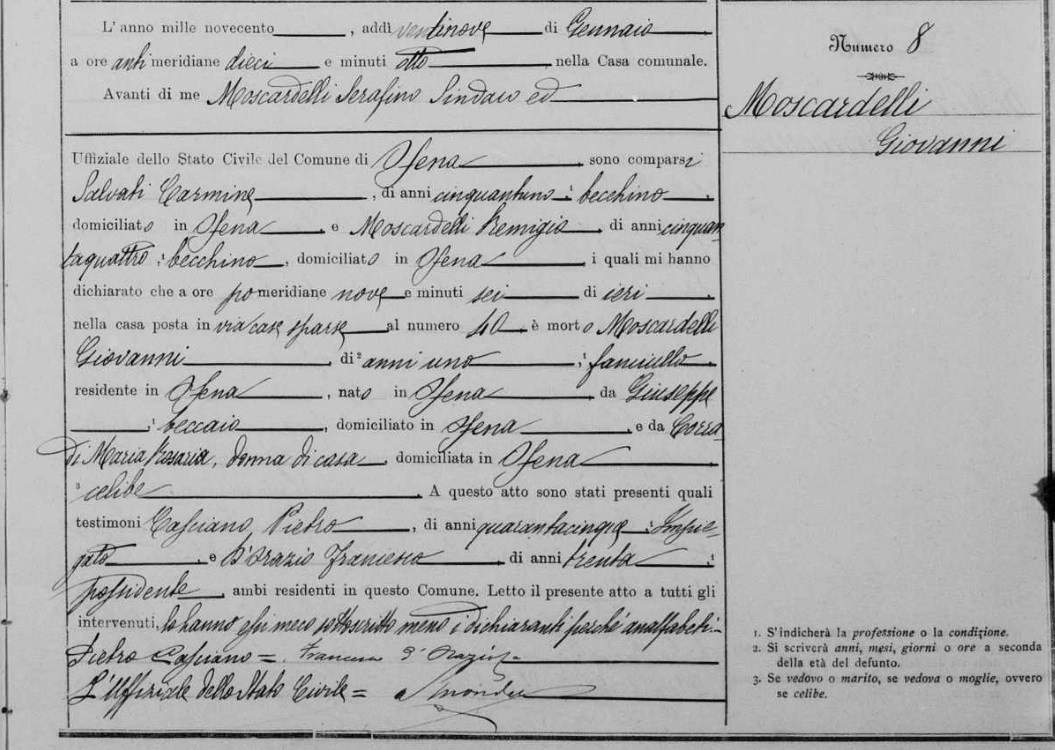 L'anno mille novecento , addì ventinove di Gennaio
a ore anti meridiane dieci e minuti otto nella Casa comunale.
Avanti di me Moscardelli Serafino Sindaco ed
Uffiziale dello Stato Civile del Comune di Ofena sono comparsi
Salvati Carmine , di anni cinquantuno ; becchino
domiciliato in Ofena e Moscardelli Remigio di anni cinquan
taquattro ; becchino , domiciliato in Ofena i quali mi hanno
dichiarato che a ore po meridiane nove e minuti sei di ieri
nella casa posta in via case sparse al numero 40 è morto Moscardelli
Giovanni di ² anni uno ; fanciullo
residente in Ofena , nato in Ofena da Giuseppe
; beccaio , domiciliato in Ofena e da Corra
di Maria Rosaria, donna di casa domiciliata in Ofena
³ celibe A questo atto sono stati presenti quali
testimoni Casciano Pietro , di anni quarantacinque ; Impie-
gato e D'Orazio Francesco di anni trenta ;
possidente , ambi residenti in questo Comune. Letto il presente atto a tutti gli
intervenuti, lo hanno essi meco sottoscritto meno i dichiaranti perché analfabeti.-
Pietro Casciano =. Francesco d'Orazio
L'Uffiziale dello Stato Civile =
Numero 8
Moscardelli
Giovanni
1. S'indicherà la professione o la condizione.
2. Si scriverà anni, mesi, giorni o ore a seconda
della età del defunto.
3. Se vedovo o marito, se vedova o moglie, ovvero
se celibe.